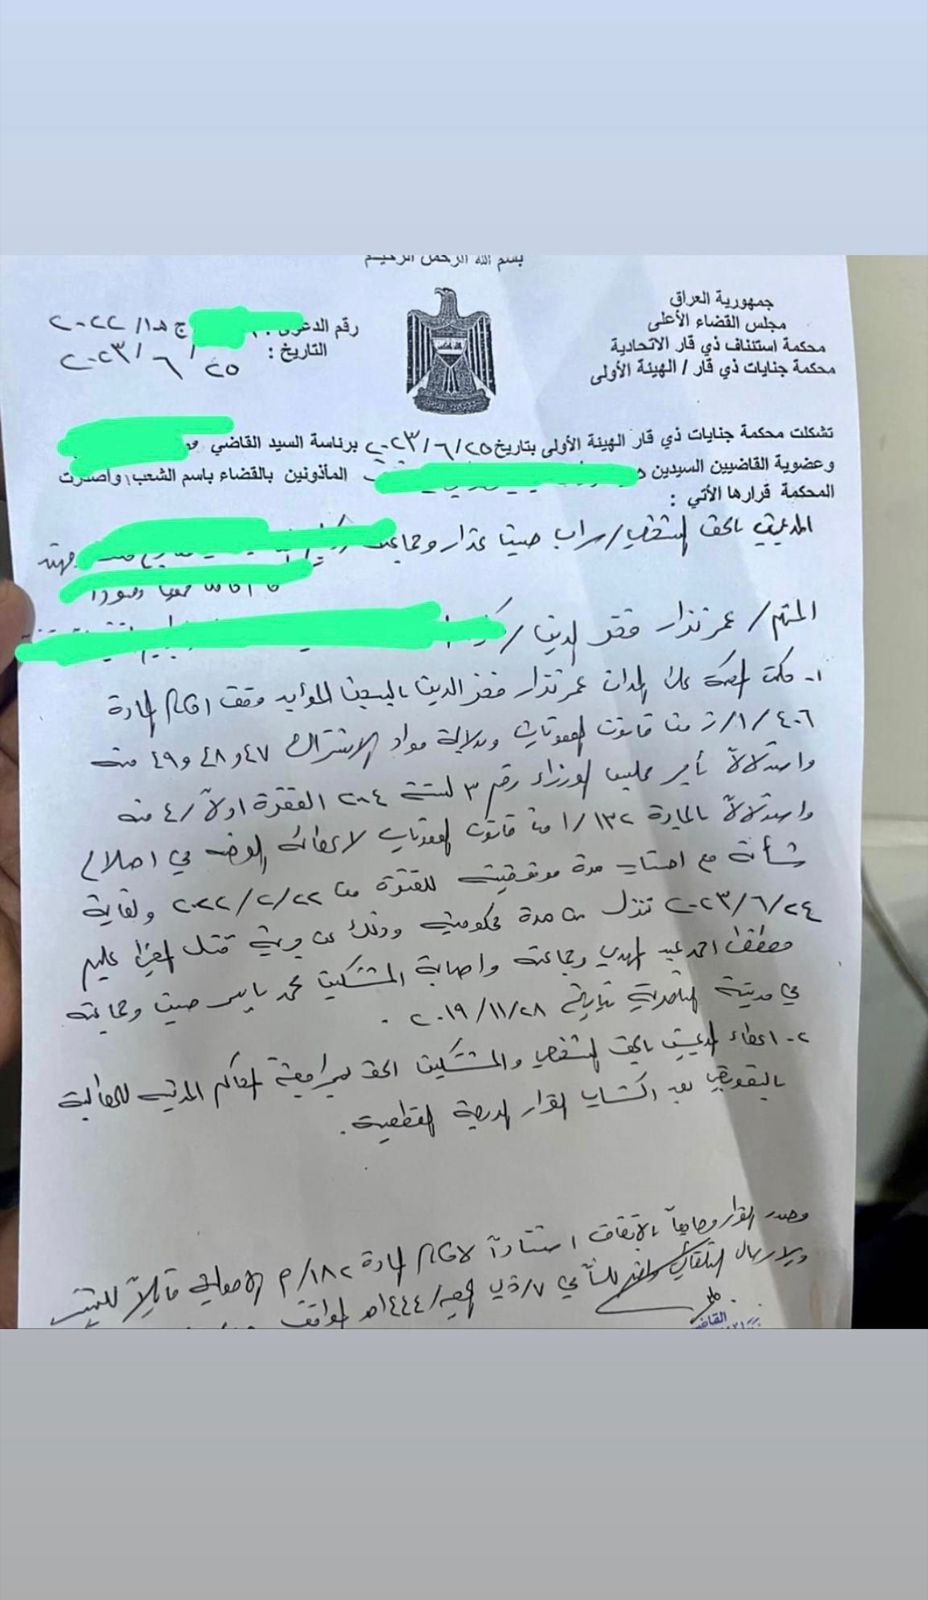 بسم الله الرحمن الرحيم
جمهورية العراق
مجلس القضاء الأعلى
محكمة استئناف ذي قار الاتحادية
محكمة جنايات ذي قار / الهيئة الأولى
رقم الدعوى : ج هـ١/ ٢٠٢٢
التاريخ : ٢٥/ ٦ /٢٠٢٣
تشكلت محكمة جنايات ذي قار الهيئة الأولى بتاريخ ٢٠٢٣/٦/٢٥ برئاسة السيد القاضي
وعضوية القاضيين السيدين المأذونين بالقضاء باسم الشعب وأصدرت
المحكمة قرارها الأتي :
المدعين بالحق الشخصي / سراب حسين عذار وجماعته
المتهم / عمر نزار فخر الدين /
١- حكمت المحكمة على المدان عمر نزار فخر الدين بالسجن المؤبد وفق احكام المادة
٤٠٦/١/ز من قانون العقوبات وبدلالة مواد الاشتراك ٤٧ و٤٨ و٤٩ منه
واستدلالاً بأمر مجلس الوزراء رقم ٣ لسنة ٢٠٠٤ الفقرة اولاً/٤ منه
واستدلالاً بالمادة ١٣٢/١ من قانون العقوبات لاعطائه الفرصة في اصلاح
شأنه مع احتساب مدة موقوفيته للفترة من ٢٠٢٢/٢/٢٢ ولغاية
٢٠٢٣/٦/٢٤ تنزل من مدة محكوميته وذلك عن جريمة قتل المجنى عليهم
مصطفى احمد عبد المهدي وجماعته واصابة المشتكين محمد ياسر حسين وجماعته
في مدينة الناصرية بتاريخ ٢٠١٩/١١/٢٨ .
٢- اعطاء المدعين بالحق الشخصي والمشتكين الحق بمراجعة المحاكم المدنية للمطالبة
بالتعويض بعد اكتساب القرار الدرجة القطعية.
وصدر القرار وجاهياً بالاتفاق استناداً لاحكام المادة ١٨٢/م الاصولية قابلاً للتمييز
وللارسال التلقائي وافهم علناً في ٧/ذي الحجة/١٤٤٤هـ الموافق
القاضي